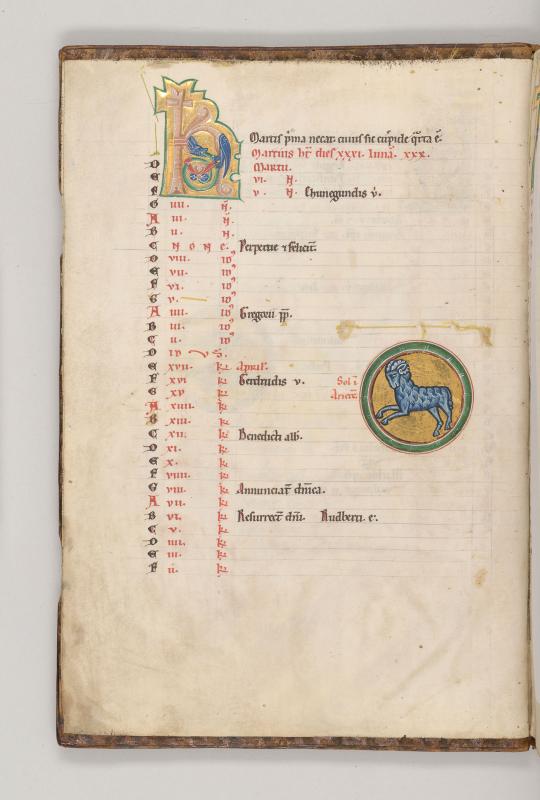 Martis prima necat cuius sic cuspide q̄rta ē.
Martius ht̄ dies xxxi. luna. xxx.
D Martii.
E vi. N̄.
F v. N̄. Chunegundis v̄.
G iiii. N̄.
A iii. N̄.
B ii. N̄.
C None. Perpetue ⁊ felicit̄.
D viii. id'
E vii. id'
F vi. id'
G v. id'
A iiii. id'
B iii. id'
C ii. id'
D
E xvii. kl̄ Aprilis.
F xvi kl̄ Gerdrudis v. Sol ī
E xv kl̄ Ariete
A xiiii. kl̄
B xiii. kl̄
C xii. kl̄ Benedicti abb.
D xi. kl̄
E x. kl̄
F viiii. kl̄
G viii. kl̄ Annunciat̄ dn̄ica.
A vii. kl̄
B vi. kl̄ Resurrect̄ dn̄i. Rudberti. e.
C v. kl̄
D iiii. kl̄
E iii. kl̄
F ii. kl̄